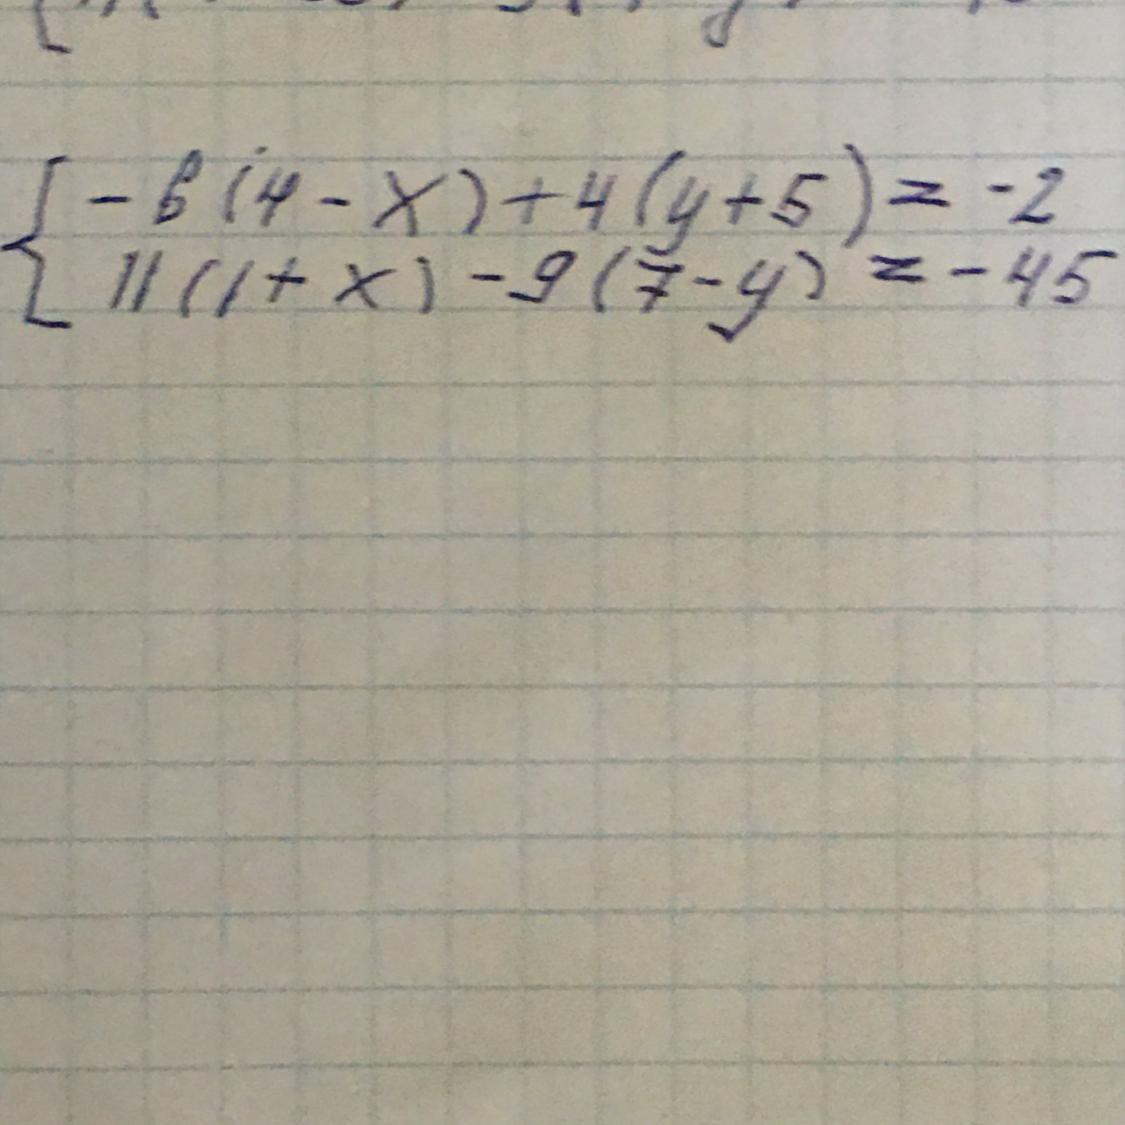 -6(4-x)+4(y+5)=-2
11(1+x)-9(7-y)=-45